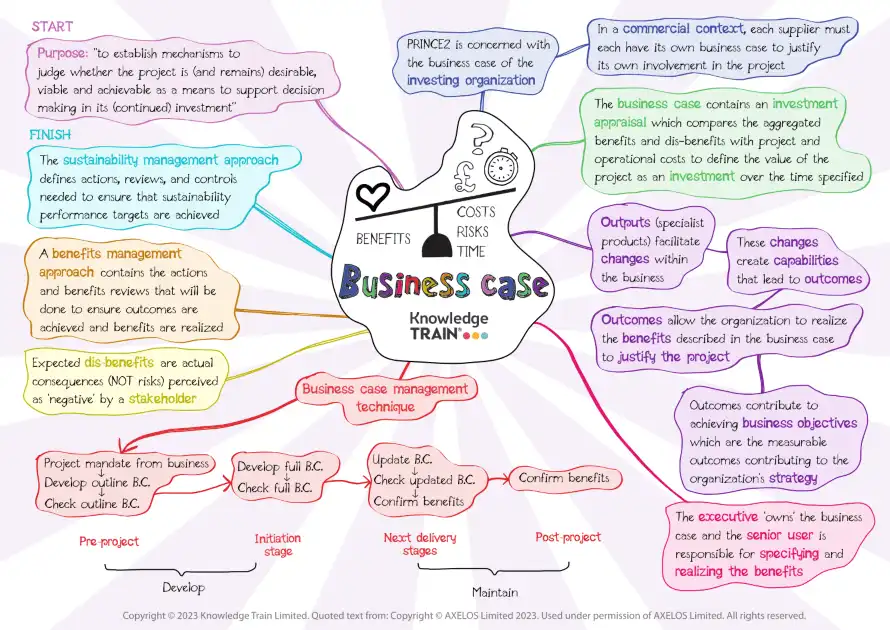 START
Purpose: "to establish mechanisms to
judge whether the project is (and remains) desirable,
viable and achievable as a means to support decision
making in its (continued) investment"
PRINCE2 is concerned with
the business case of the
investing organization
In a commercial context, each supplier must
each have its own business case to justify
its own involvement in the project
The business case contains an investment
appraisal which compares the aggregated
benefits and dis-benefits with project and
operational costs to define the value of the
project as an investment over the time specified
FINISH
The sustainability management approach
defines actions, reviews, and controls
needed to ensure that sustainability
performance targets are achieved
?
£
BENEFITS
COSTS
RISKS
TIME
Business case
Knowledge
TRAIN®
Outputs (specialist
products) facilitate
changes within
the business
These changes
create capabilities
that lead to outcomes
A benefits management
approach contains the actions
and benefits reviews that will be
done to ensure outcomes are
achieved and benefits are realized
Outcomes allow the organization to realize
the benefits described in the business case
to justify the project
Expected dis-benefits are actual
consequences (NOT risks) perceived
as 'negative' by a stakeholder
Business case management
technique
Outcomes contribute to
achieving business objectives
which are the measurable
outcomes contributing to the
organization's strategy
Project mandate from business
Develop outline B.C.
Check outline B.C.
Develop full B.C.
Check full B.C.
Update B.C.
Check updated B.C.
Confirm benefits
Confirm benefits
The executive 'owns' the business
case and the senior user is
responsible for specifying and
realizing the benefits
Pre-project
Initiation
stage
Next delivery
stages
Post-project
Develop
Maintain
Copyright © 2023 Knowledge Train Limited. Quoted text from: Copyright © AXELOS Limited 2023. Used under permission of AXELOS Limited. All rights reserved.